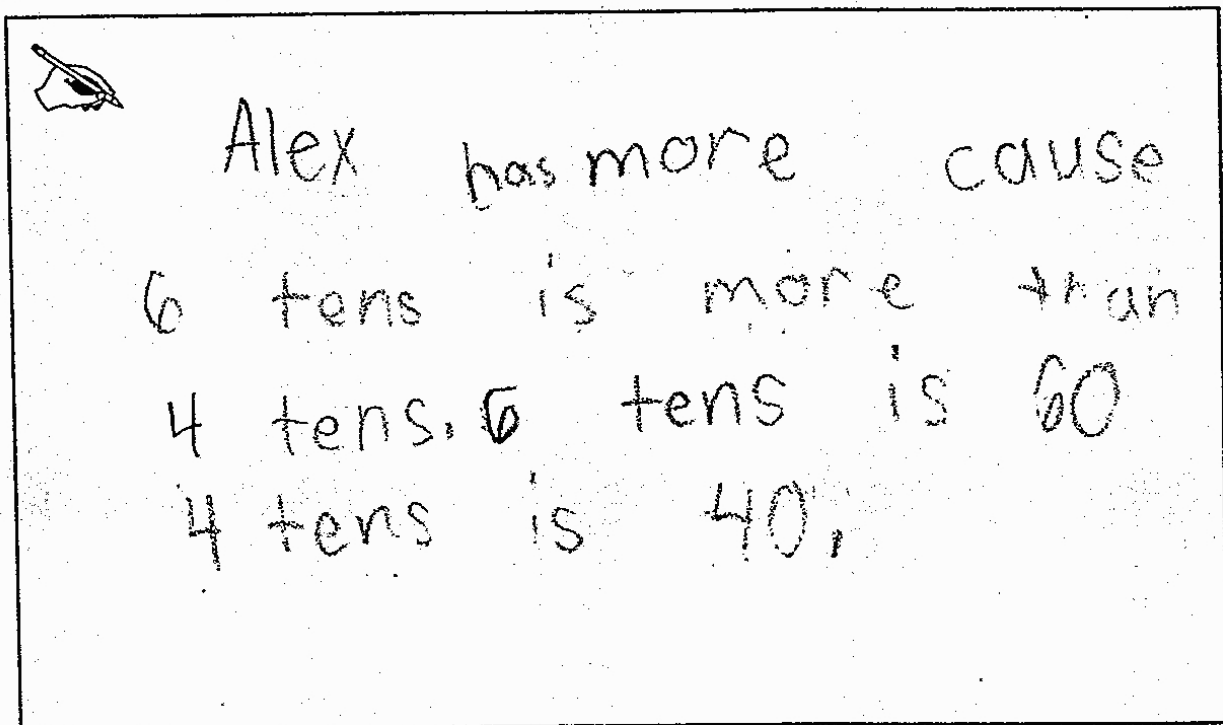 Alex has more cause
6 tens is more than
4 tens. 6 tens is 60
4 tens is 40.